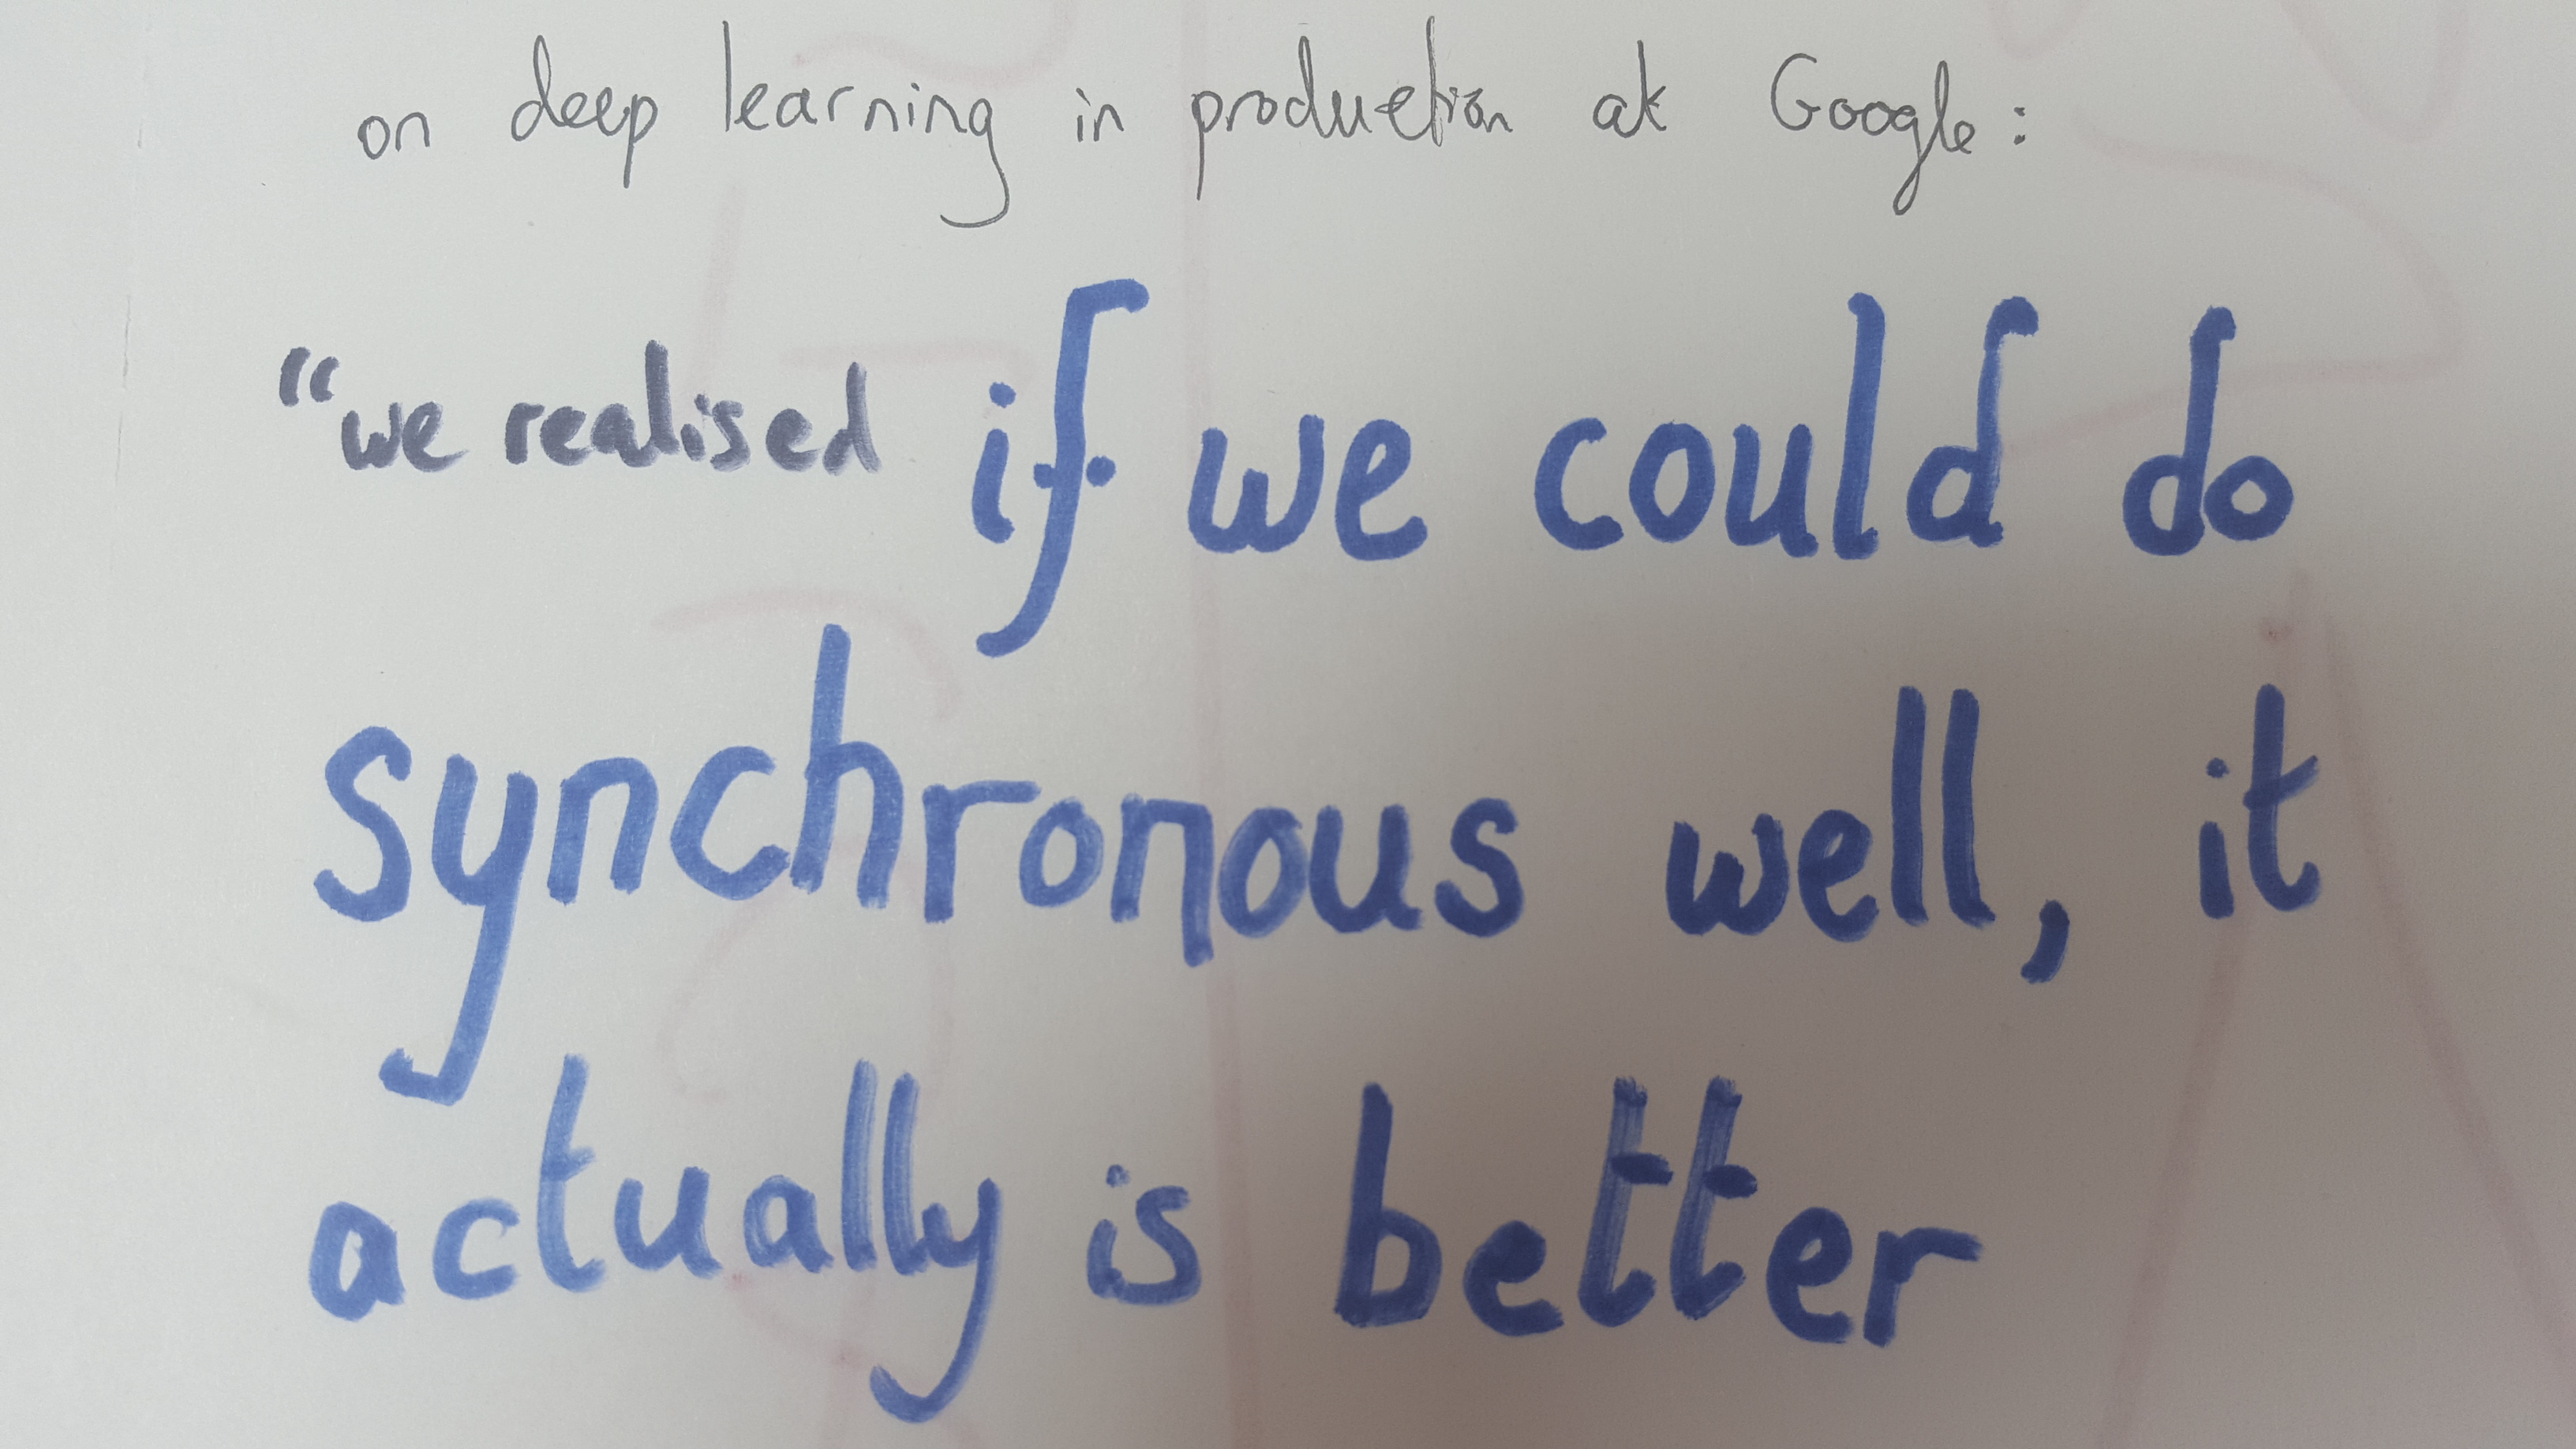 on deep learning in production at Google:
"we realised if we could do
synchronous well, it
actually is better